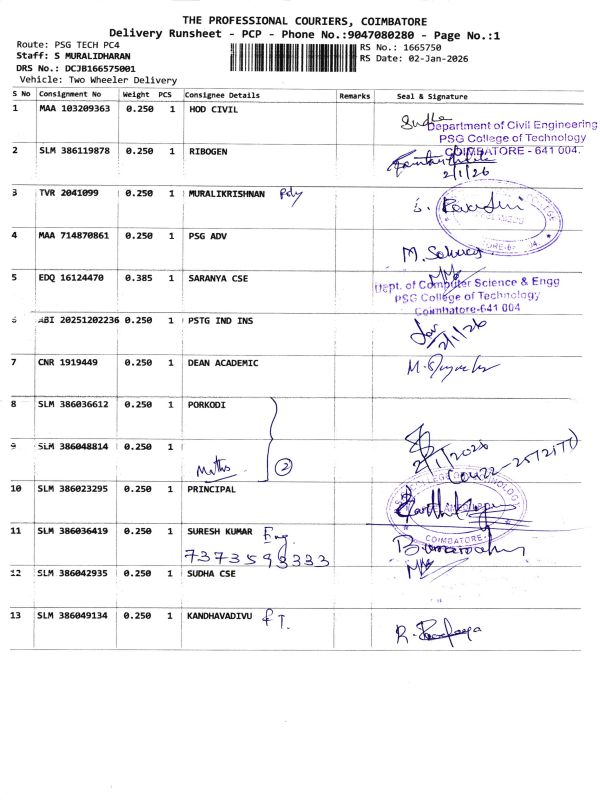 THE PROFESSIONAL COURIERS, COIMBATORE
Delivery Runsheet - PCP - Phone No.:9047080280 - Page No.:1
Route: PSG TECH PC4
RS No.: 1665750
Staff: S MURALIDHARAN
RS Date: 02-Jan-2026
DRS No.: DCJB166575001
Vehicle: Two Wheeler Delivery
S No Consignment No Weight PCS Consignee Details Remarks Seal & Signature
1 MAA 103209363 0.250 1 HOD CIVIL Sudha
Department of Civil Engineering
PSG College of Technology
COIMBATORE - 641 004.
2 SLM 386119878 0.250 1 RIBOGEN
2/1/26
3 TVR 2041099 0.250 1 MURALIKRISHNAN Poly
4 MAA 714870861 0.250 1 PSG ADV
5 EDQ 16124470 0.385 1 SARANYA CSE
Dept. of Computer Science & Engg
PSG College of Technology
Coimbatore-641 004
6 ABI 20251202236 0.250 1 PSTG IND INS
2/1/26
7 CNR 1919449 0.250 1 DEAN ACADEMIC
8 SLM 386036612 0.250 1 PORKODI
2/1/2026
9 SLM 386048814 0.250 1
Maths 2
10 SLM 386023295 0.250 1 PRINCIPAL
COIMBATORE
11 SLM 386036419 0.250 1 SURESH KUMAR Eng
7373593333
12 SLM 386042935 0.250 1 SUDHA CSE
13 SLM 386049134 0.250 1 KANDHAVADIVU FT.